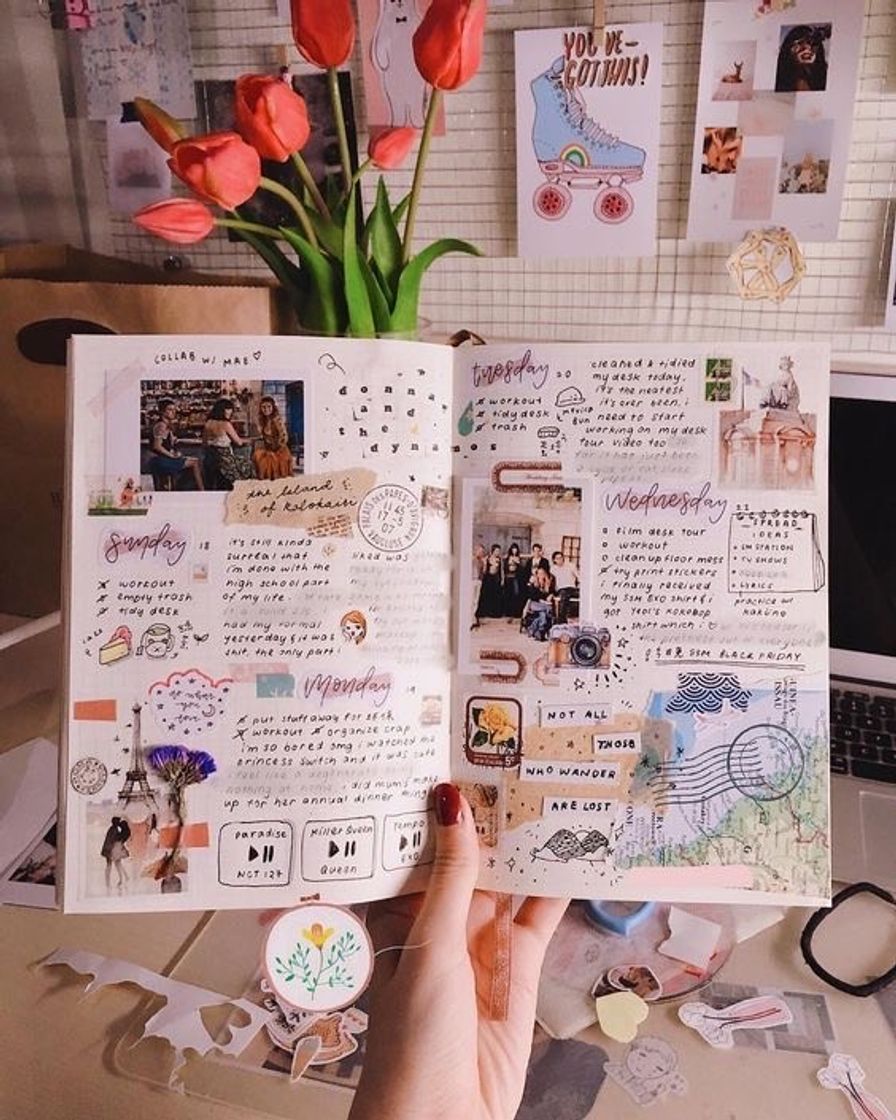 YOU'VE-
GOT THIS!
COLLAB W/ MAE♡
donna
and
the
dynamos
the island
of kalokairi
PALAIS DES PAPES
11 45
17 -5
07
VAUCLUSE
sunday 18
workout
empty trash
tidy desk
it's still kinda
surreal that
i'm done with the
high school part
of my life.
had my formal
yesterday & it was
shit. the only part i
liked was
cake
do what
you
love
monday 19
put stuff away for SE4K
workout organize crap
i'm so bored omg i watched the
princess switch and it was cute
i did mum's make
up for her annual dinner thing
paradise
NCT 127
Killer Queen
Queen
Tempo
EXO
tuesday 20
workout
tidy desk
trash
cleaned & tidied
my desk today.
it's the neatest
it's ever been. i
need to start
working on my desk
tour video too
mexico
bun
wednesday 21
film desk tour
workout
clean up floor mess
try print stickers
i finally received
my SSM EXO shirt &
got Yeol's kokobop
shirt which i
SPREAD
IDEAS
SM STATION
TV SHOWS
LYRICS
practice w/
SSM BLACK FRIDAY
NOT ALL
THOSE
WHO WANDER
ARE LOST